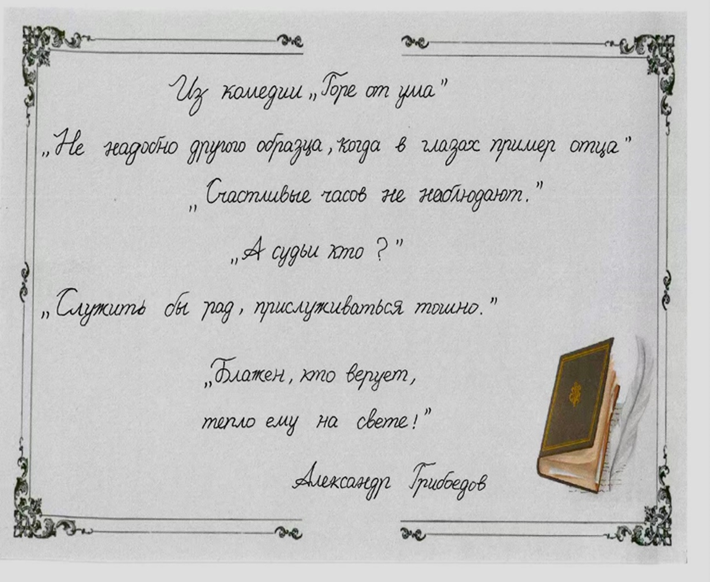 Из комедии „Горе от ума"
„Не надобно другого образца, когда в глазах пример отца"
„Счастливые часов не наблюдают."
„А судьи кто?"
„Служить бы рад, прислуживаться тошно."
„Блажен, кто верует,
тепло ему на свете!"
Александр Грибоедов